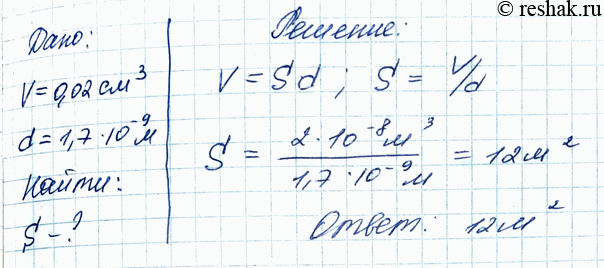 © reshak.ru
Дано:
V = 0,02 см³
d = 1,7·10⁻⁹ м
Найти:
S - ?
Решение:
V = Sd ; S = V/d
S = 2·10⁻⁸ м³ / 1,7·10⁻⁹ м = 12 м²
Ответ: 12 м²